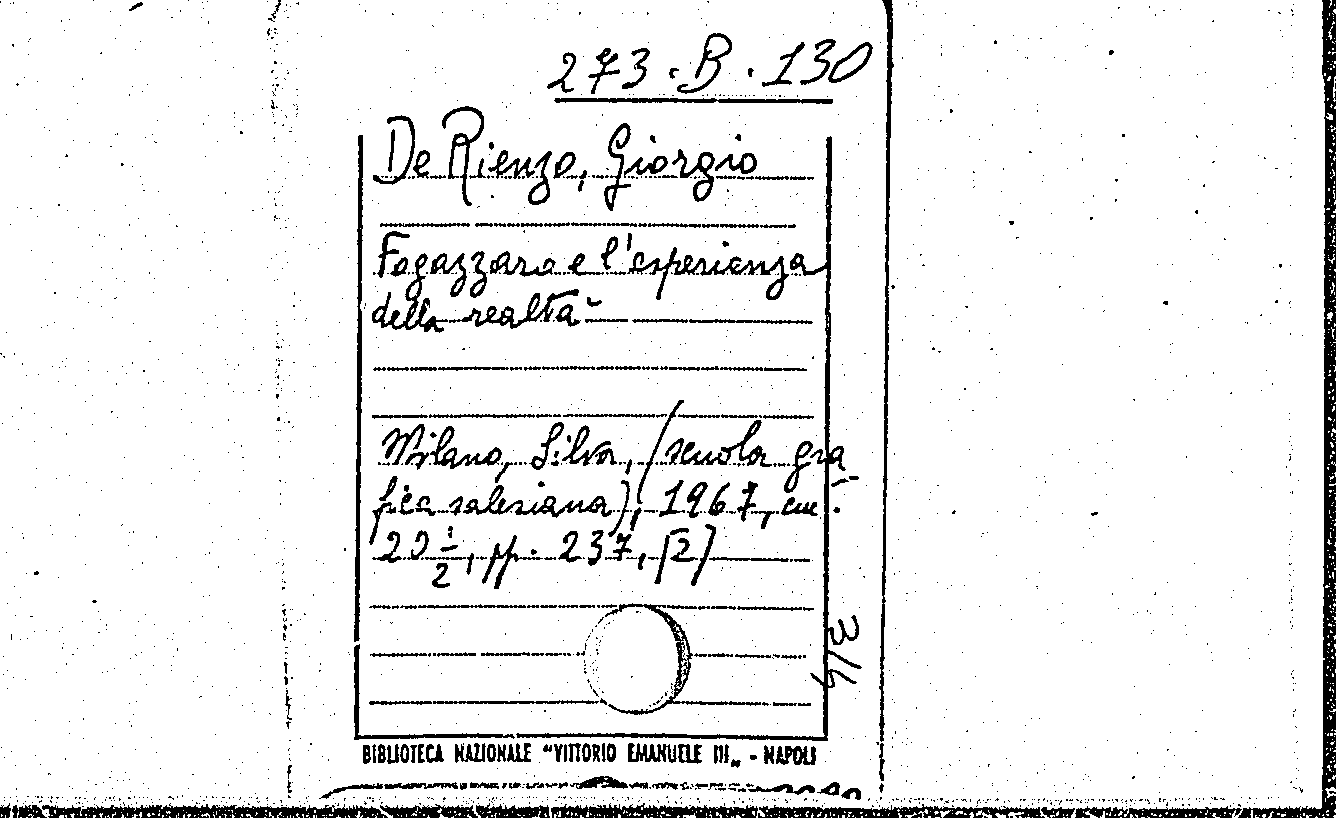 273.B.130
De Rienzo, Giorgio
Fogazzaro e l'esperienza
della realtà
Milano, Silva, (scuola gra-
fica salesiana), 1967, cm.
20 1/2, pp. 237, [2]
BIBLIOTECA NAZIONALE "VITTORIO EMANUELE III„ - NAPOLI